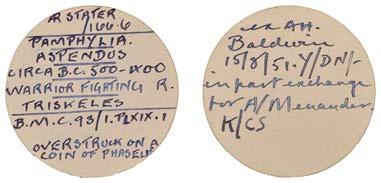 AR STATER
/166.6
PAMPHYLIA.
ASPENDUS
CIRCA B.C. 500-400
WARRIOR FIGHTING R.
TRISKELES
B.M.C. 93/1. PLXIX.1
OVERSTRUCK ON A
COIN OF PHASELI
ex A.H.
Baldwin
15/8/51. Y/DN/-
in part exchange
for A/Menander
K/CS